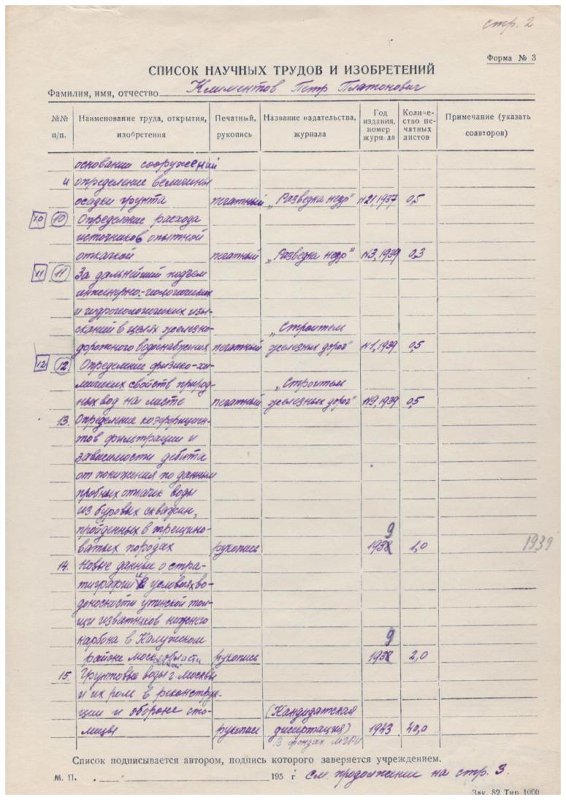 стр. 2
Форма № 3
СПИСОК НАУЧНЫХ ТРУДОВ И ИЗОБРЕТЕНИЙ
Фамилия, имя, отчество Климентов Петр Платонович
№№ п/п. Наименование труда, открытия, изобретения Печатный, рукопись Название издательства, журнала Год издания, номер журнала Количество печатных листов Примечание (указать соавторов)
основании сооружений
и определение величины
осадки грунта печатный „Разведка недр" №21, 1937 0,5
10 10 Определение расхода
источников опытной
откачкой печатный „Разведка недр" №3, 1939 0,3
11 11 За дальнейший подъем
инженерно-геологических
и гидрогеологических изы-
сканий в целях железно- „Строитель
дорожного водоснабжения печатный железных дорог" №1, 1939 0,5
12 12. Определение физико-хи-
мических свойств природ- „Строитель
ных вод на месте печатный железных дорог" №9, 1939 0,5
13. Определение коэффициен-
тов фильтрации и
зависимости дебита
от понижения по данным
пробных откачек воды
из буровых скважин,
пройденных в трещино- 9
ватых породах рукопись 1938 1,0 1939
14. Новые данные о стра-
тиграфии и условиях во-
доносности упинской тол-
щи известняков нижнего
карбона в Калужском 9
районе Моск. области рукопись 1938 2,0
15. Грунтовые воды г. Москвы
и их роль в реконструк-
ции и обороне сто- (Кандидатская
лицы рукопись диссертация) 1943 40,0
в фондах МГРИ
Список подписывается автором, подпись которого заверяется учреждением.
М. П. 195 г. см продолжение на стр. 3.
Зак. 82 Тир 1000